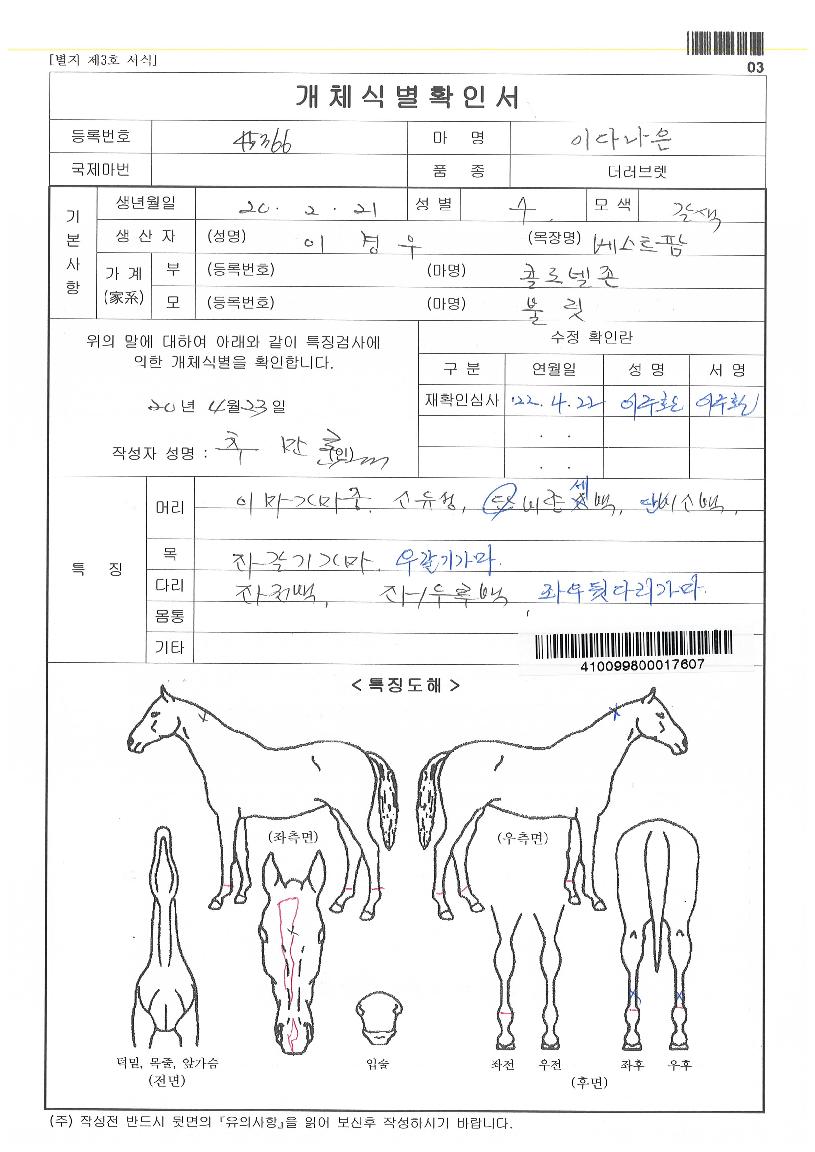 [별지 제3호 서식]
03
개체식별확인서
등록번호 45366 마 명 이다나은
국제마번 품 종 더러브렛
기본사항
생년월일 20. 2. 21 성 별 수 모 색 갈색
생 산 자 (성명) 이 경 우 (목장명) 베스트팜
가 계 (家系)
부 (등록번호) (마명) 콜로넬존
모 (등록번호) (마명) 불릿
위의 말에 대하여 아래와 같이 특징검사에
의한 개체식별을 확인합니다.
20년 4월23일
작성자 성명 : 추 만 (인)
수정 확인란
구 분 연월일 성 명 서 명
재확인심사 '22. 4. 22
. .
. .
특 징
머리 이마가마중, 소유성, 비 세백,
목 좌갈기가마, 우갈기가마.
다리 좌전백, 좌/우륙백, 좌우뒷다리가마.
몸통
기타
410099800017607
< 특징도해 >
(좌측면) (우측면)
턱밑, 목줄, 앞가슴 입술 좌전 우전 좌후 우후
(전면) (후면)
(주) 작성전 반드시 뒷면의 『유의사항』을 읽어 보신후 작성하시기 바랍니다.